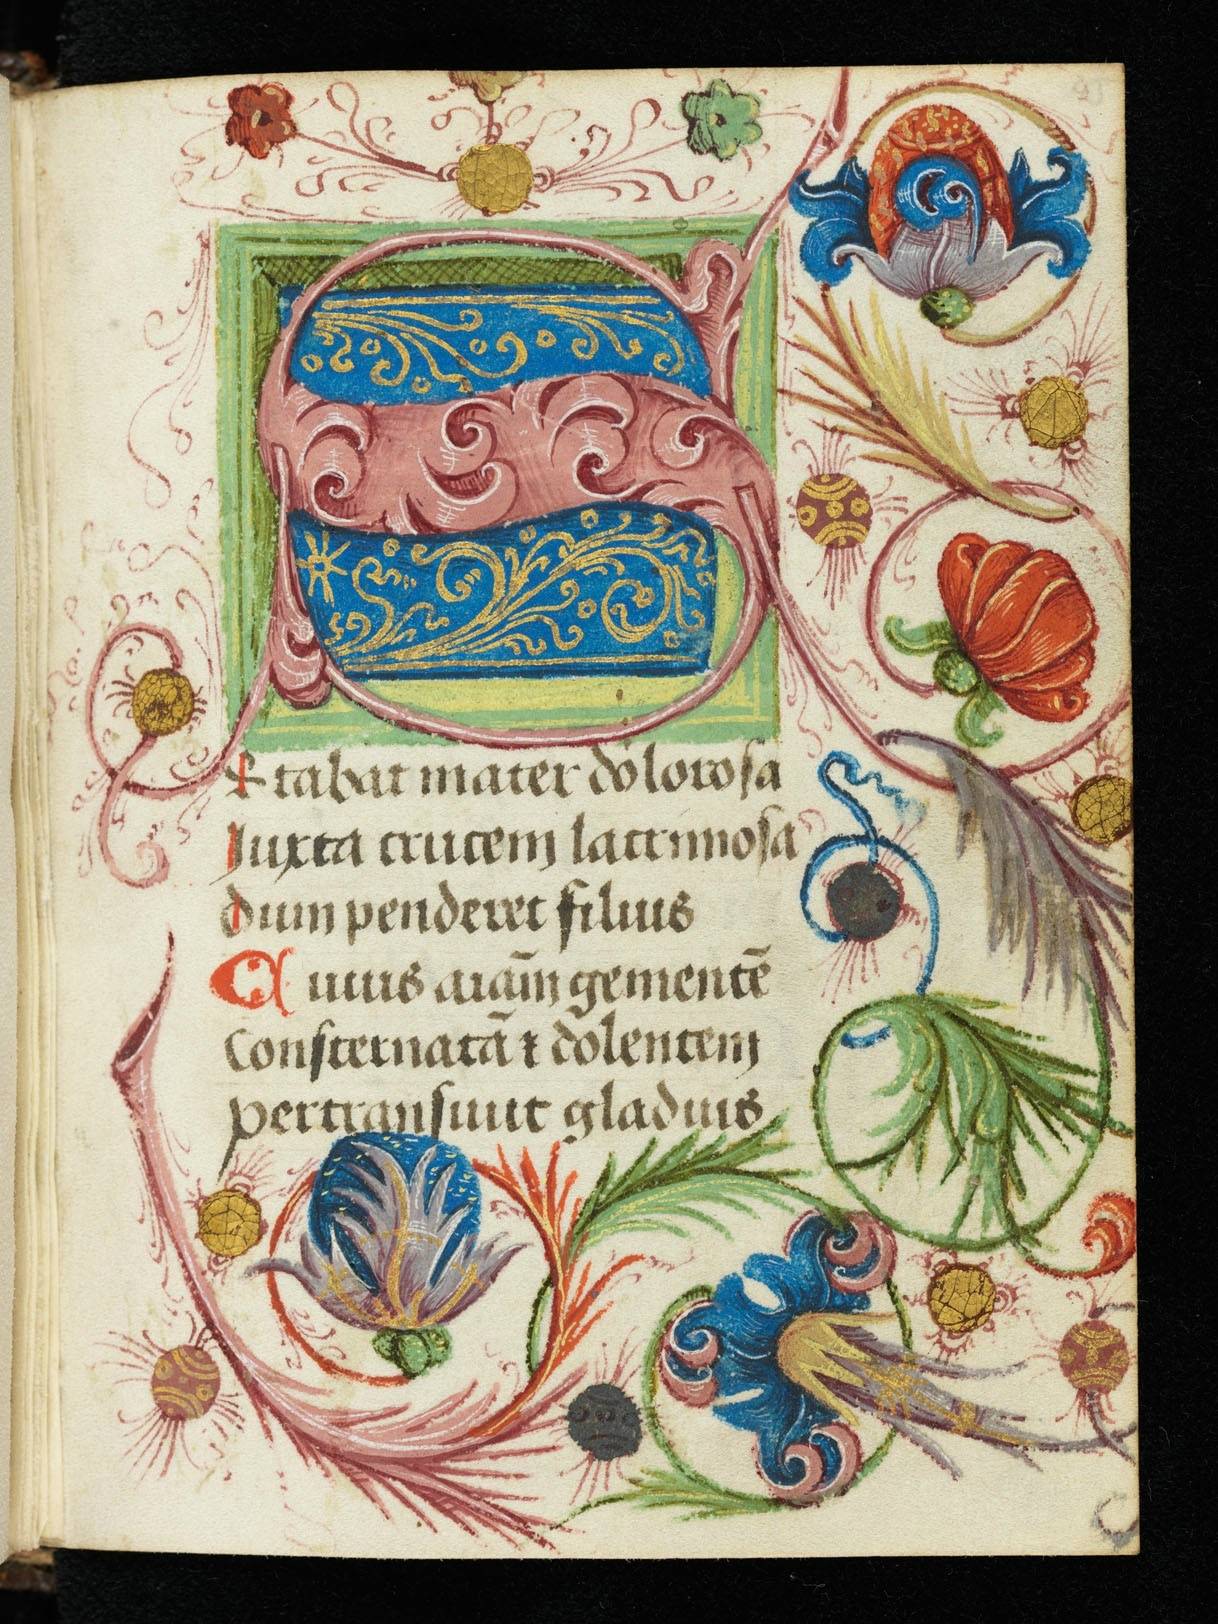 S
Stabat mater dolorosa
Juxta crucem lacrimosa
dum penderet filius
Cuius aiam̄ gementē
Consternatā ⁊ dolentem
pertransiuit gladius